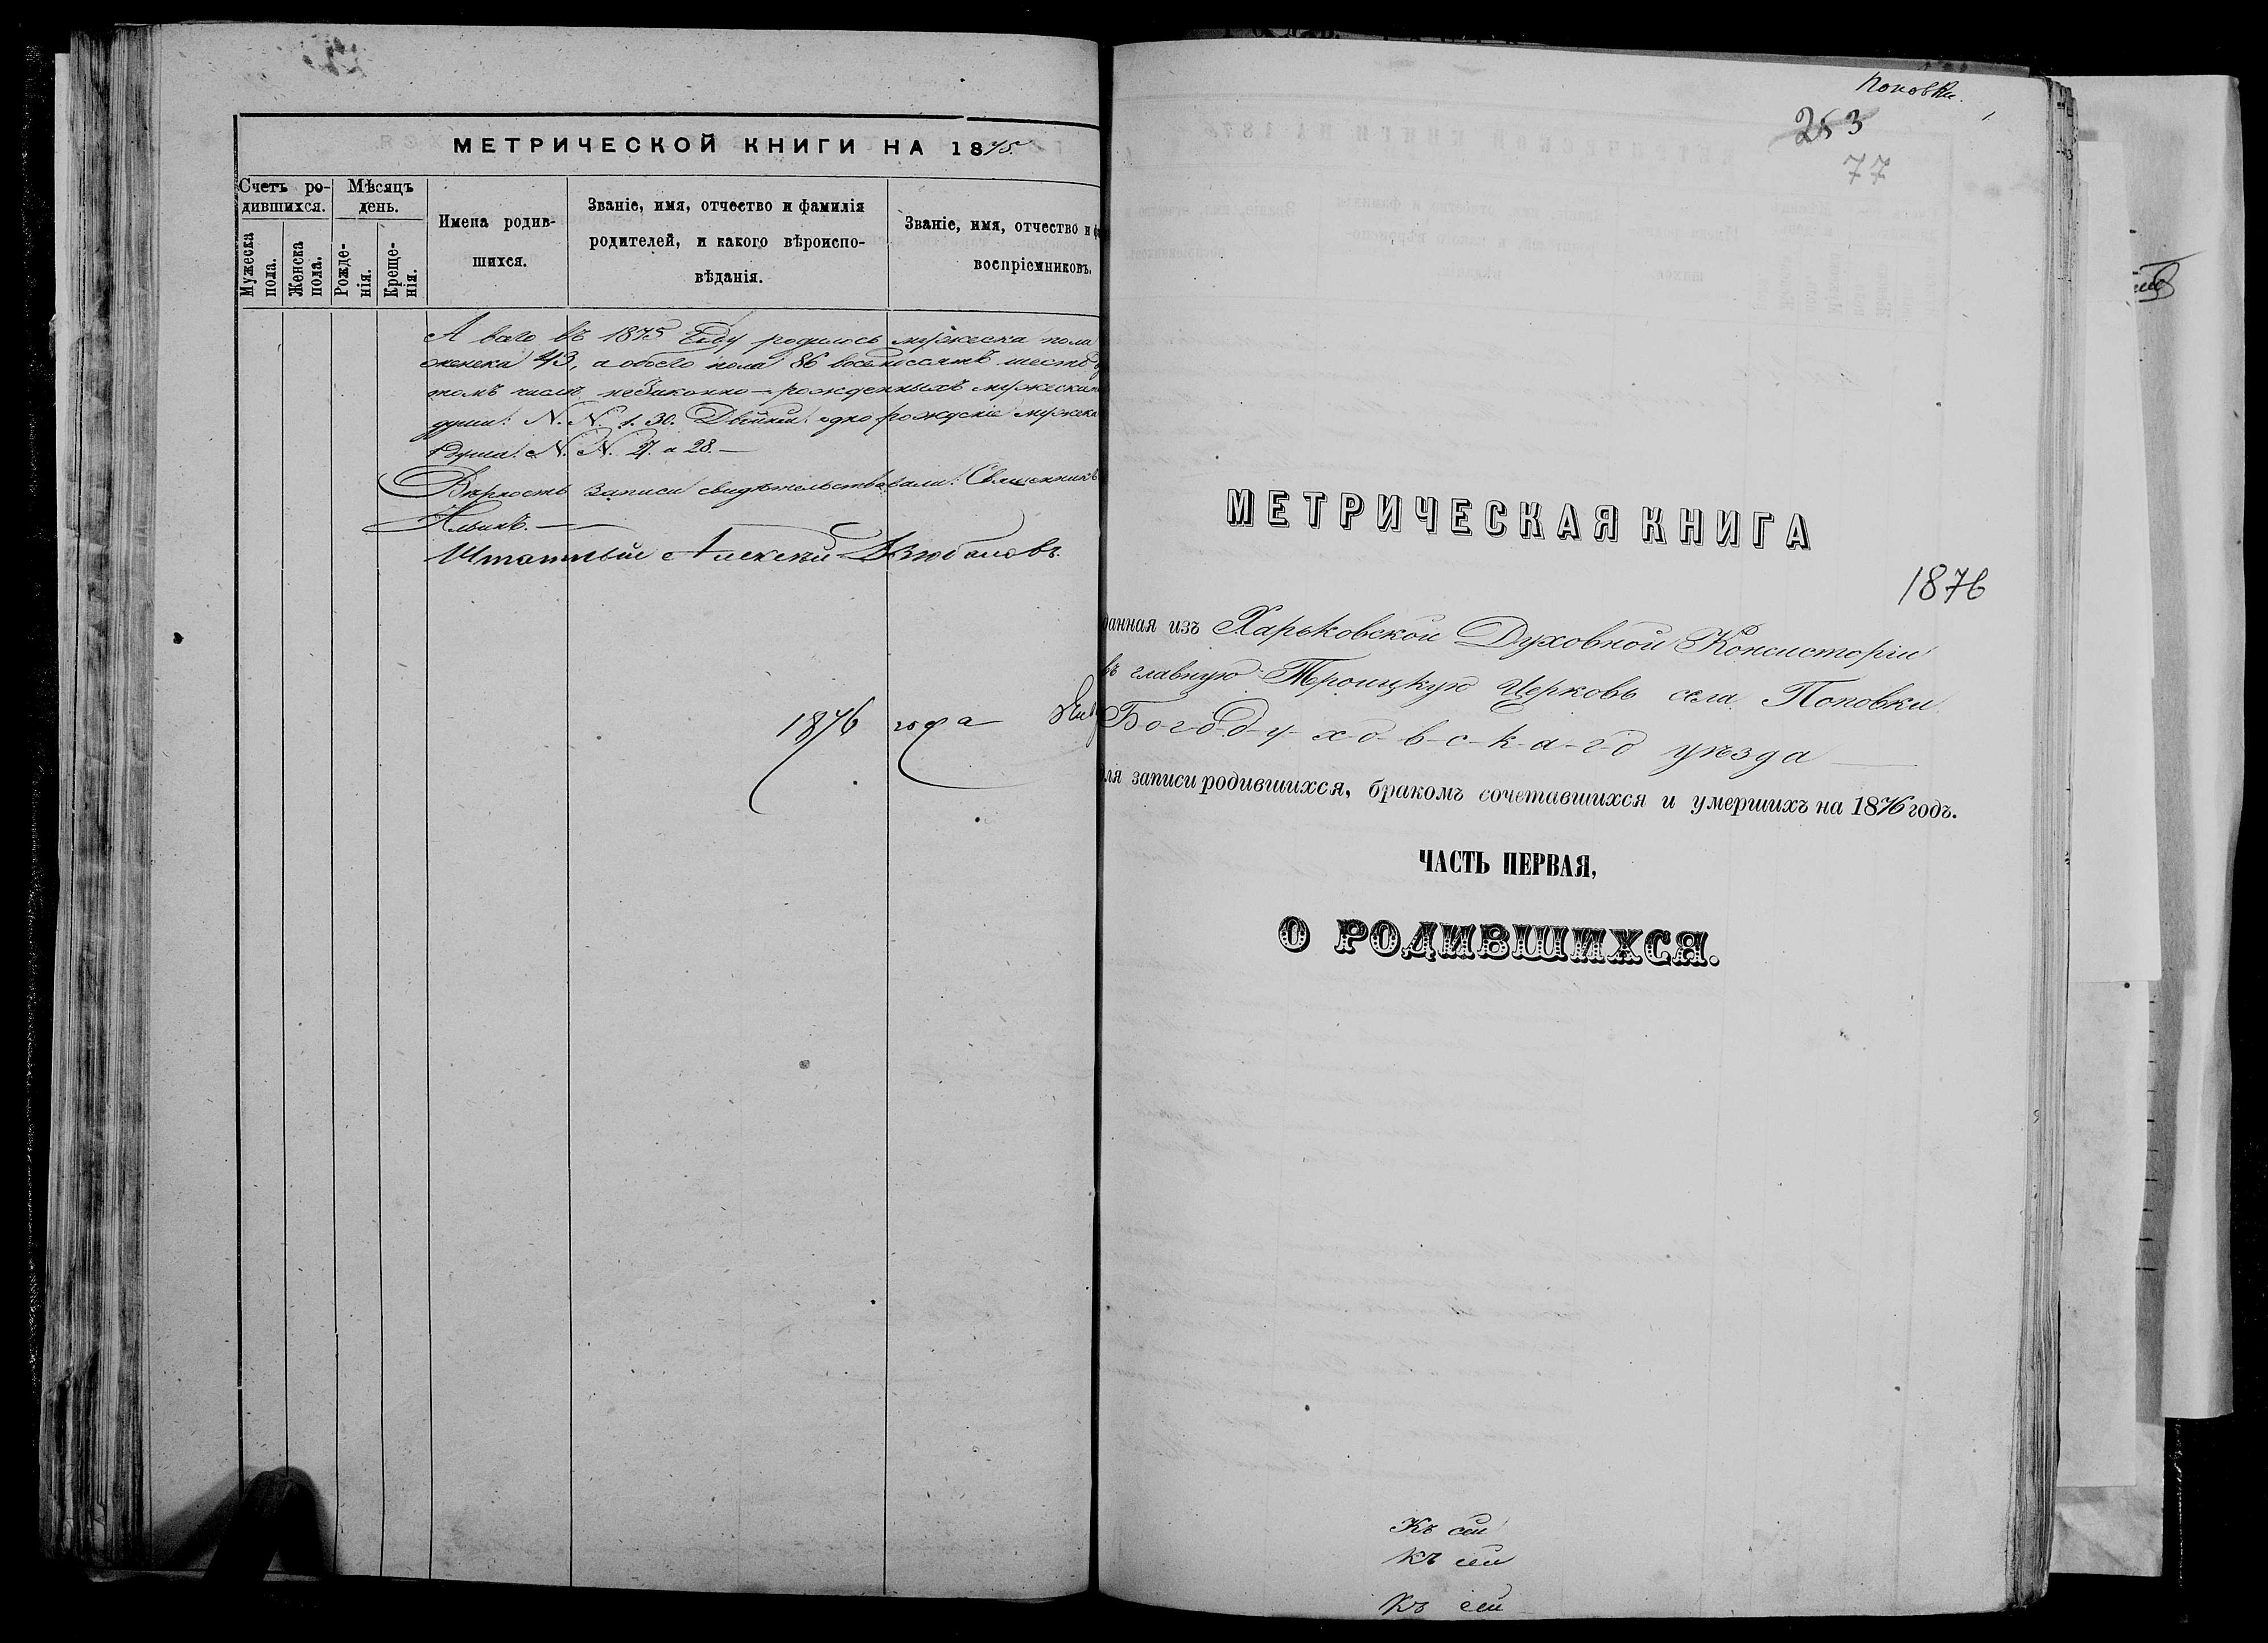 МЕТРИЧЕСКОЙ КНИГИ НА 1875.
Счетъ ро-
дившихся.
Мѣсяцъ
день.
Мужеска
пола.
Женска
пола.
Рожде-
нія.
Креще-
нія.
Имена родив-
шихся.
Званіе, имя, отчество и фамилія
родителей, и какого вѣроиспо-
вѣданія.
Званіе, имя, отчество и
воспріемниковъ.
А всего въ 1875 году родилось мужеска пола
женска 43, а обоего пола 86 восемьдесятъ шесть
томъ числѣ незаконно-рожденныхъ мужеска
души: N. N. 1. 30. Двойни: одно рожденіе мужеска
души: N. N. 27. и 28. —
Вѣрность записи свидѣтельствовали: Священникъ
Штатный Алексѣй
1876 года
Поповки.
253
77
МЕТРИЧЕСКАЯ КНИГА
1876
данная изъ Харьковской Духовной Консисторіи
въ главную Троицкую Церковь села Поповки
Б-о-г-о-д-у-х-о-в-с-к-а-г-о уѣзда —
для записи родившихся, бракомъ сочетавшихся и умершихъ на 1876 годъ.
ЧАСТЬ ПЕРВАЯ,
О РОДИВШИХСЯ.
Къ сей
Къ сей
Къ сей